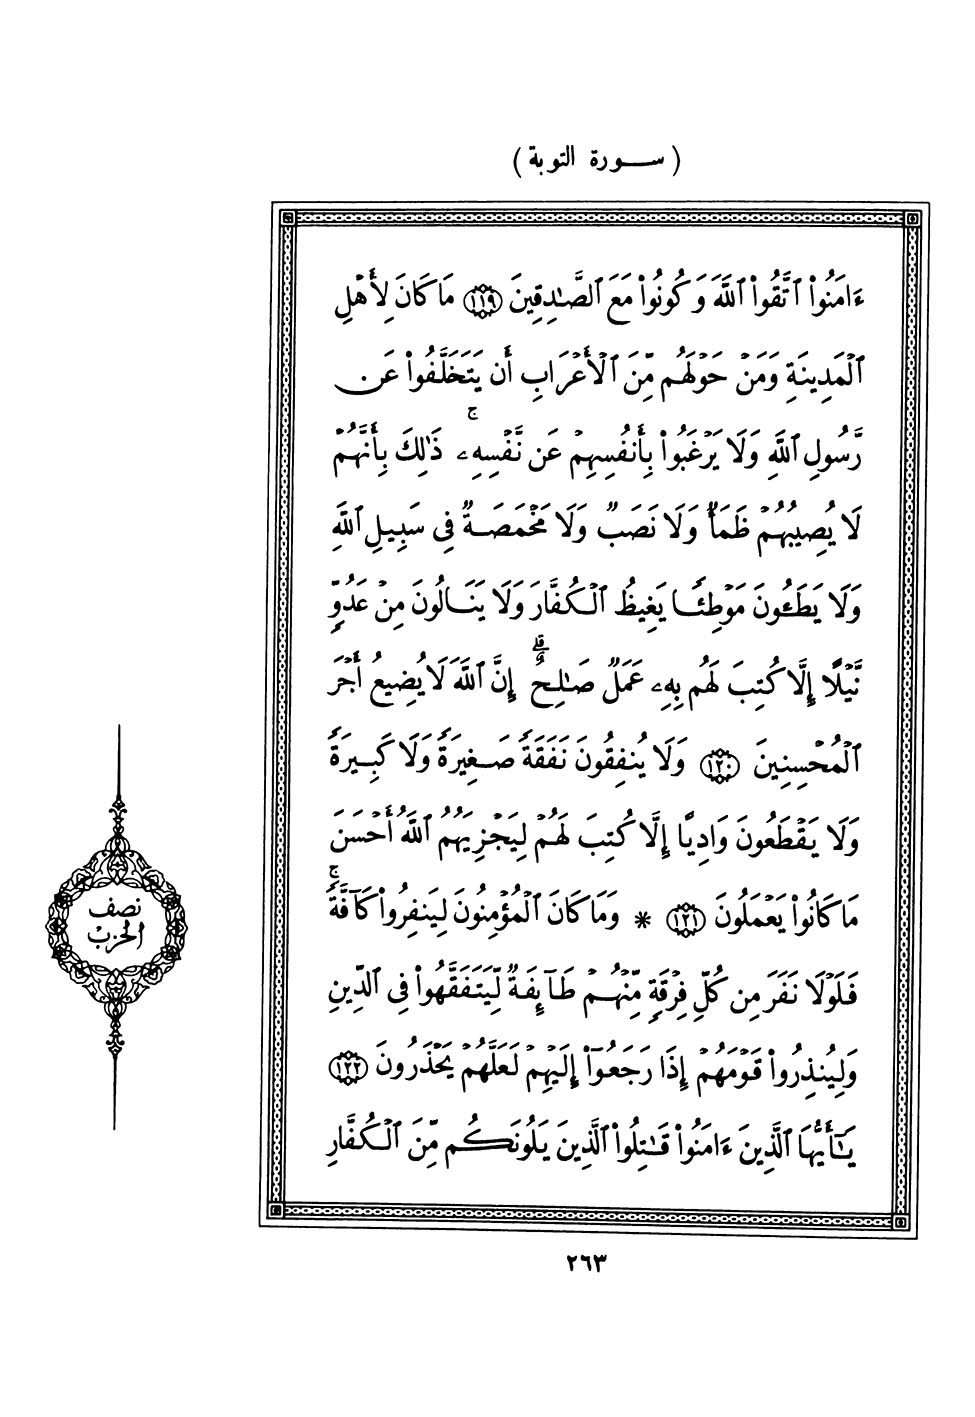 ( سورة التوبة )
ءَامَنُوا۟ ٱتَّقُوا۟ ٱللَّهَ وَكُونُوا۟ مَعَ ٱلصَّـٰدِقِينَ ١١٩ مَا كَانَ لِأَهْلِ
ٱلْمَدِينَةِ وَمَنْ حَوْلَهُم مِّنَ ٱلْأَعْرَابِ أَن يَتَخَلَّفُوا۟ عَن
رَّسُولِ ٱللَّهِ وَلَا يَرْغَبُوا۟ بِأَنفُسِهِمْ عَن نَّفْسِهِۦ ۚ ذَٰلِكَ بِأَنَّهُمْ
لَا يُصِيبُهُمْ ظَمَأٌ وَلَا نَصَبٌ وَلَا مَخْمَصَةٌ فِى سَبِيلِ ٱللَّهِ
وَلَا يَطَـُٔونَ مَوْطِئًا يَغِيظُ ٱلْكُفَّارَ وَلَا يَنَالُونَ مِنْ عَدُوٍّ
نَّيْلًا إِلَّا كُتِبَ لَهُم بِهِۦ عَمَلٌ صَـٰلِحٌ ۗ إِنَّ ٱللَّهَ لَا يُضِيعُ أَجْرَ
ٱلْمُحْسِنِينَ ١٢٠ وَلَا يُنفِقُونَ نَفَقَةً صَغِيرَةً وَلَا كَبِيرَةً
وَلَا يَقْطَعُونَ وَادِيًا إِلَّا كُتِبَ لَهُمْ لِيَجْزِيَهُمُ ٱللَّهُ أَحْسَنَ
مَا كَانُوا۟ يَعْمَلُونَ ١٢١ * وَمَا كَانَ ٱلْمُؤْمِنُونَ لِيَنفِرُوا۟ كَآفَّةً ۚ
فَلَوْلَا نَفَرَ مِن كُلِّ فِرْقَةٍ مِّنْهُمْ طَآئِفَةٌ لِّيَتَفَقَّهُوا۟ فِى ٱلدِّينِ
وَلِيُنذِرُوا۟ قَوْمَهُمْ إِذَا رَجَعُوٓا۟ إِلَيْهِمْ لَعَلَّهُمْ يَحْذَرُونَ ١٢٢
يَـٰٓأَيُّهَا ٱلَّذِينَ ءَامَنُوا۟ قَـٰتِلُوا۟ ٱلَّذِينَ يَلُونَكُم مِّنَ ٱلْكُفَّارِ
نصف
الحزب
٢٦٣